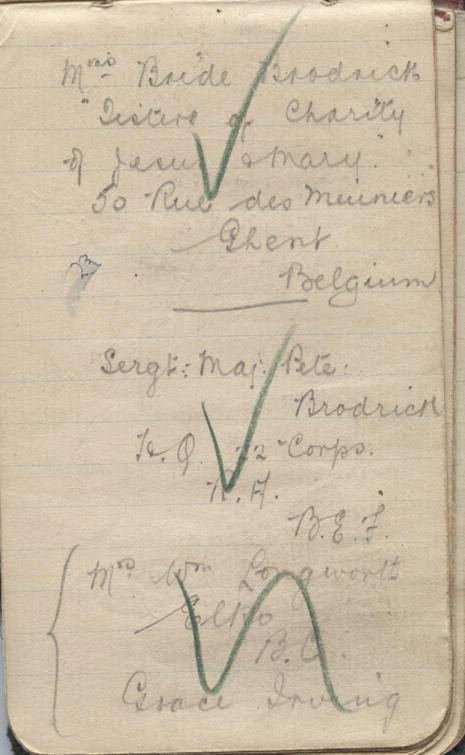 Mrs Bride Brodrick
"Sisters of Charity
of Jesus & Mary"
50 Rue des Meuniers
Ghent
Belgium
Sergt: Maj. Pete:
Brodrick
H.Q. 22 Corps.
R.A.
B.E.F.
Mrs Wm Longworth
Elko
B.C.
Grace Irving